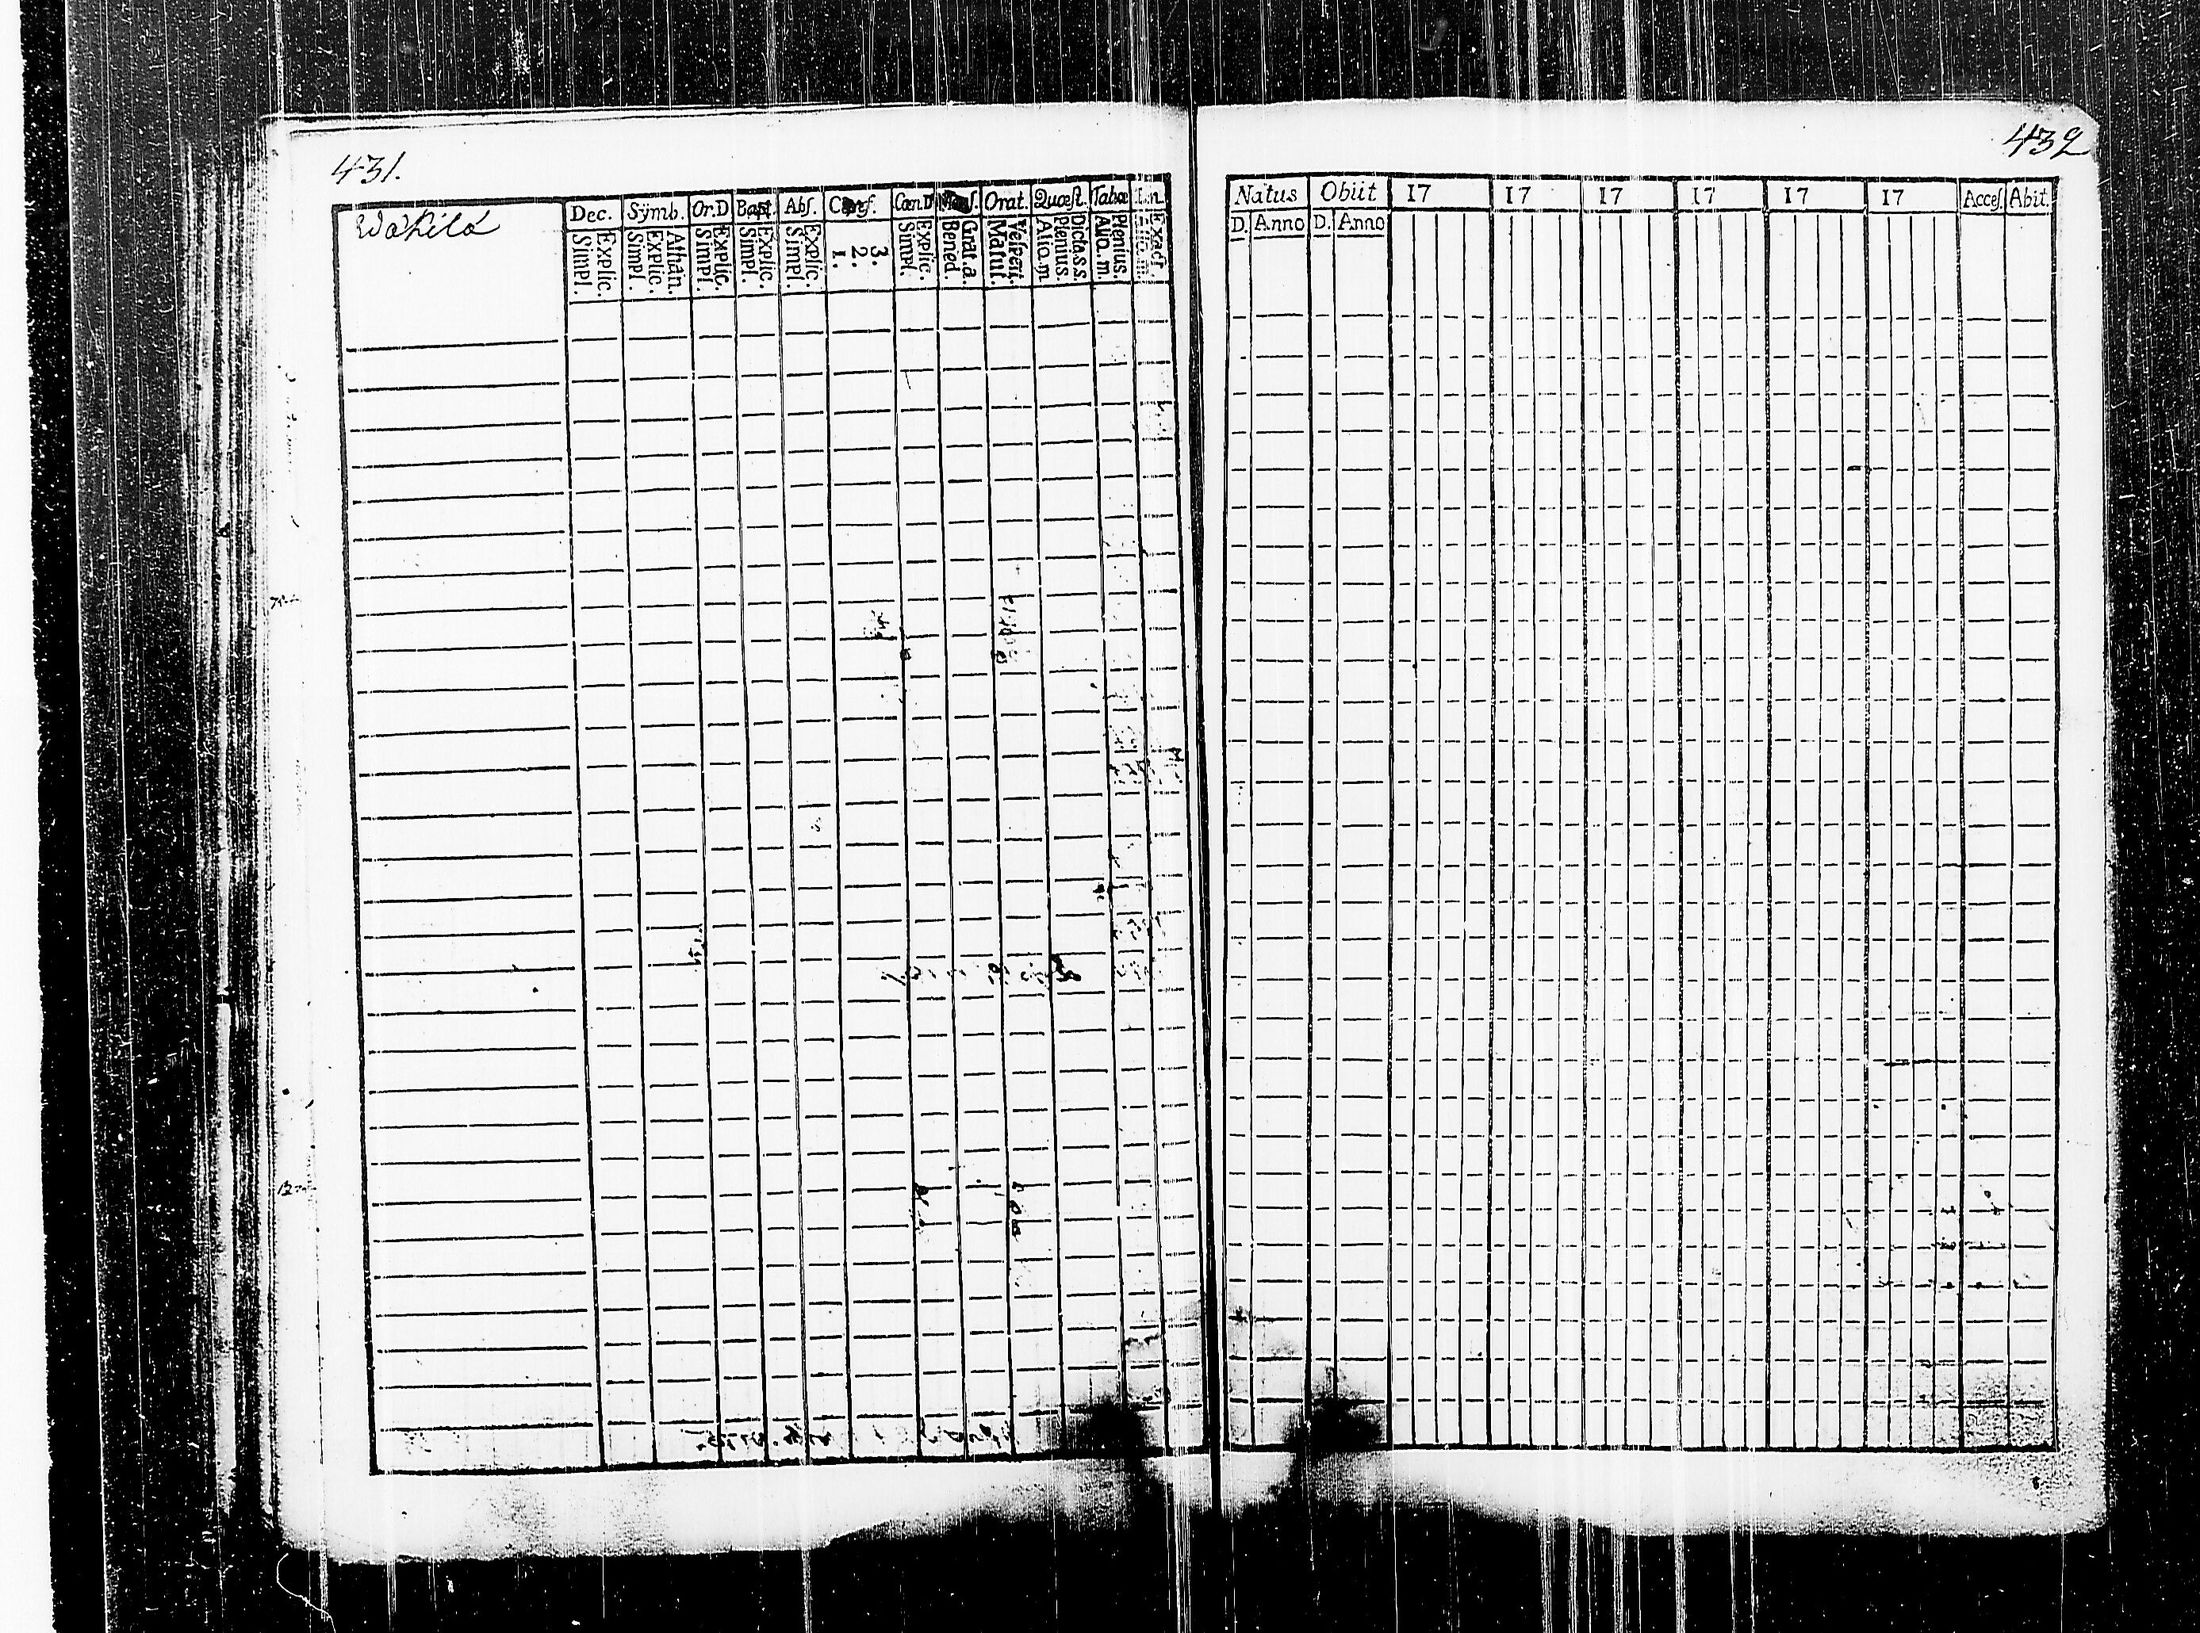 431.
Wahila
Dec. Sÿmb. Or.D Bapt. Abſ. Conf. Cœn.D Menſ. Orat. Quœſt. Tabœ
Simpl. Explic. Simpl. Explic. Athan. Simpl. Explic. Simpl. Explic. Simpl. Explic. 1. 2. 3. Simpl. Explic. Bened. Grat.a. Matut. Veſperi. Alio.m Plenius. Dicta.s.s. Alio.m. Plenius. Alio.m. Exact.
432
Natus Obiit 17 17 17 17 17 17 Acceſ Abit.
D. Anno D. Anno